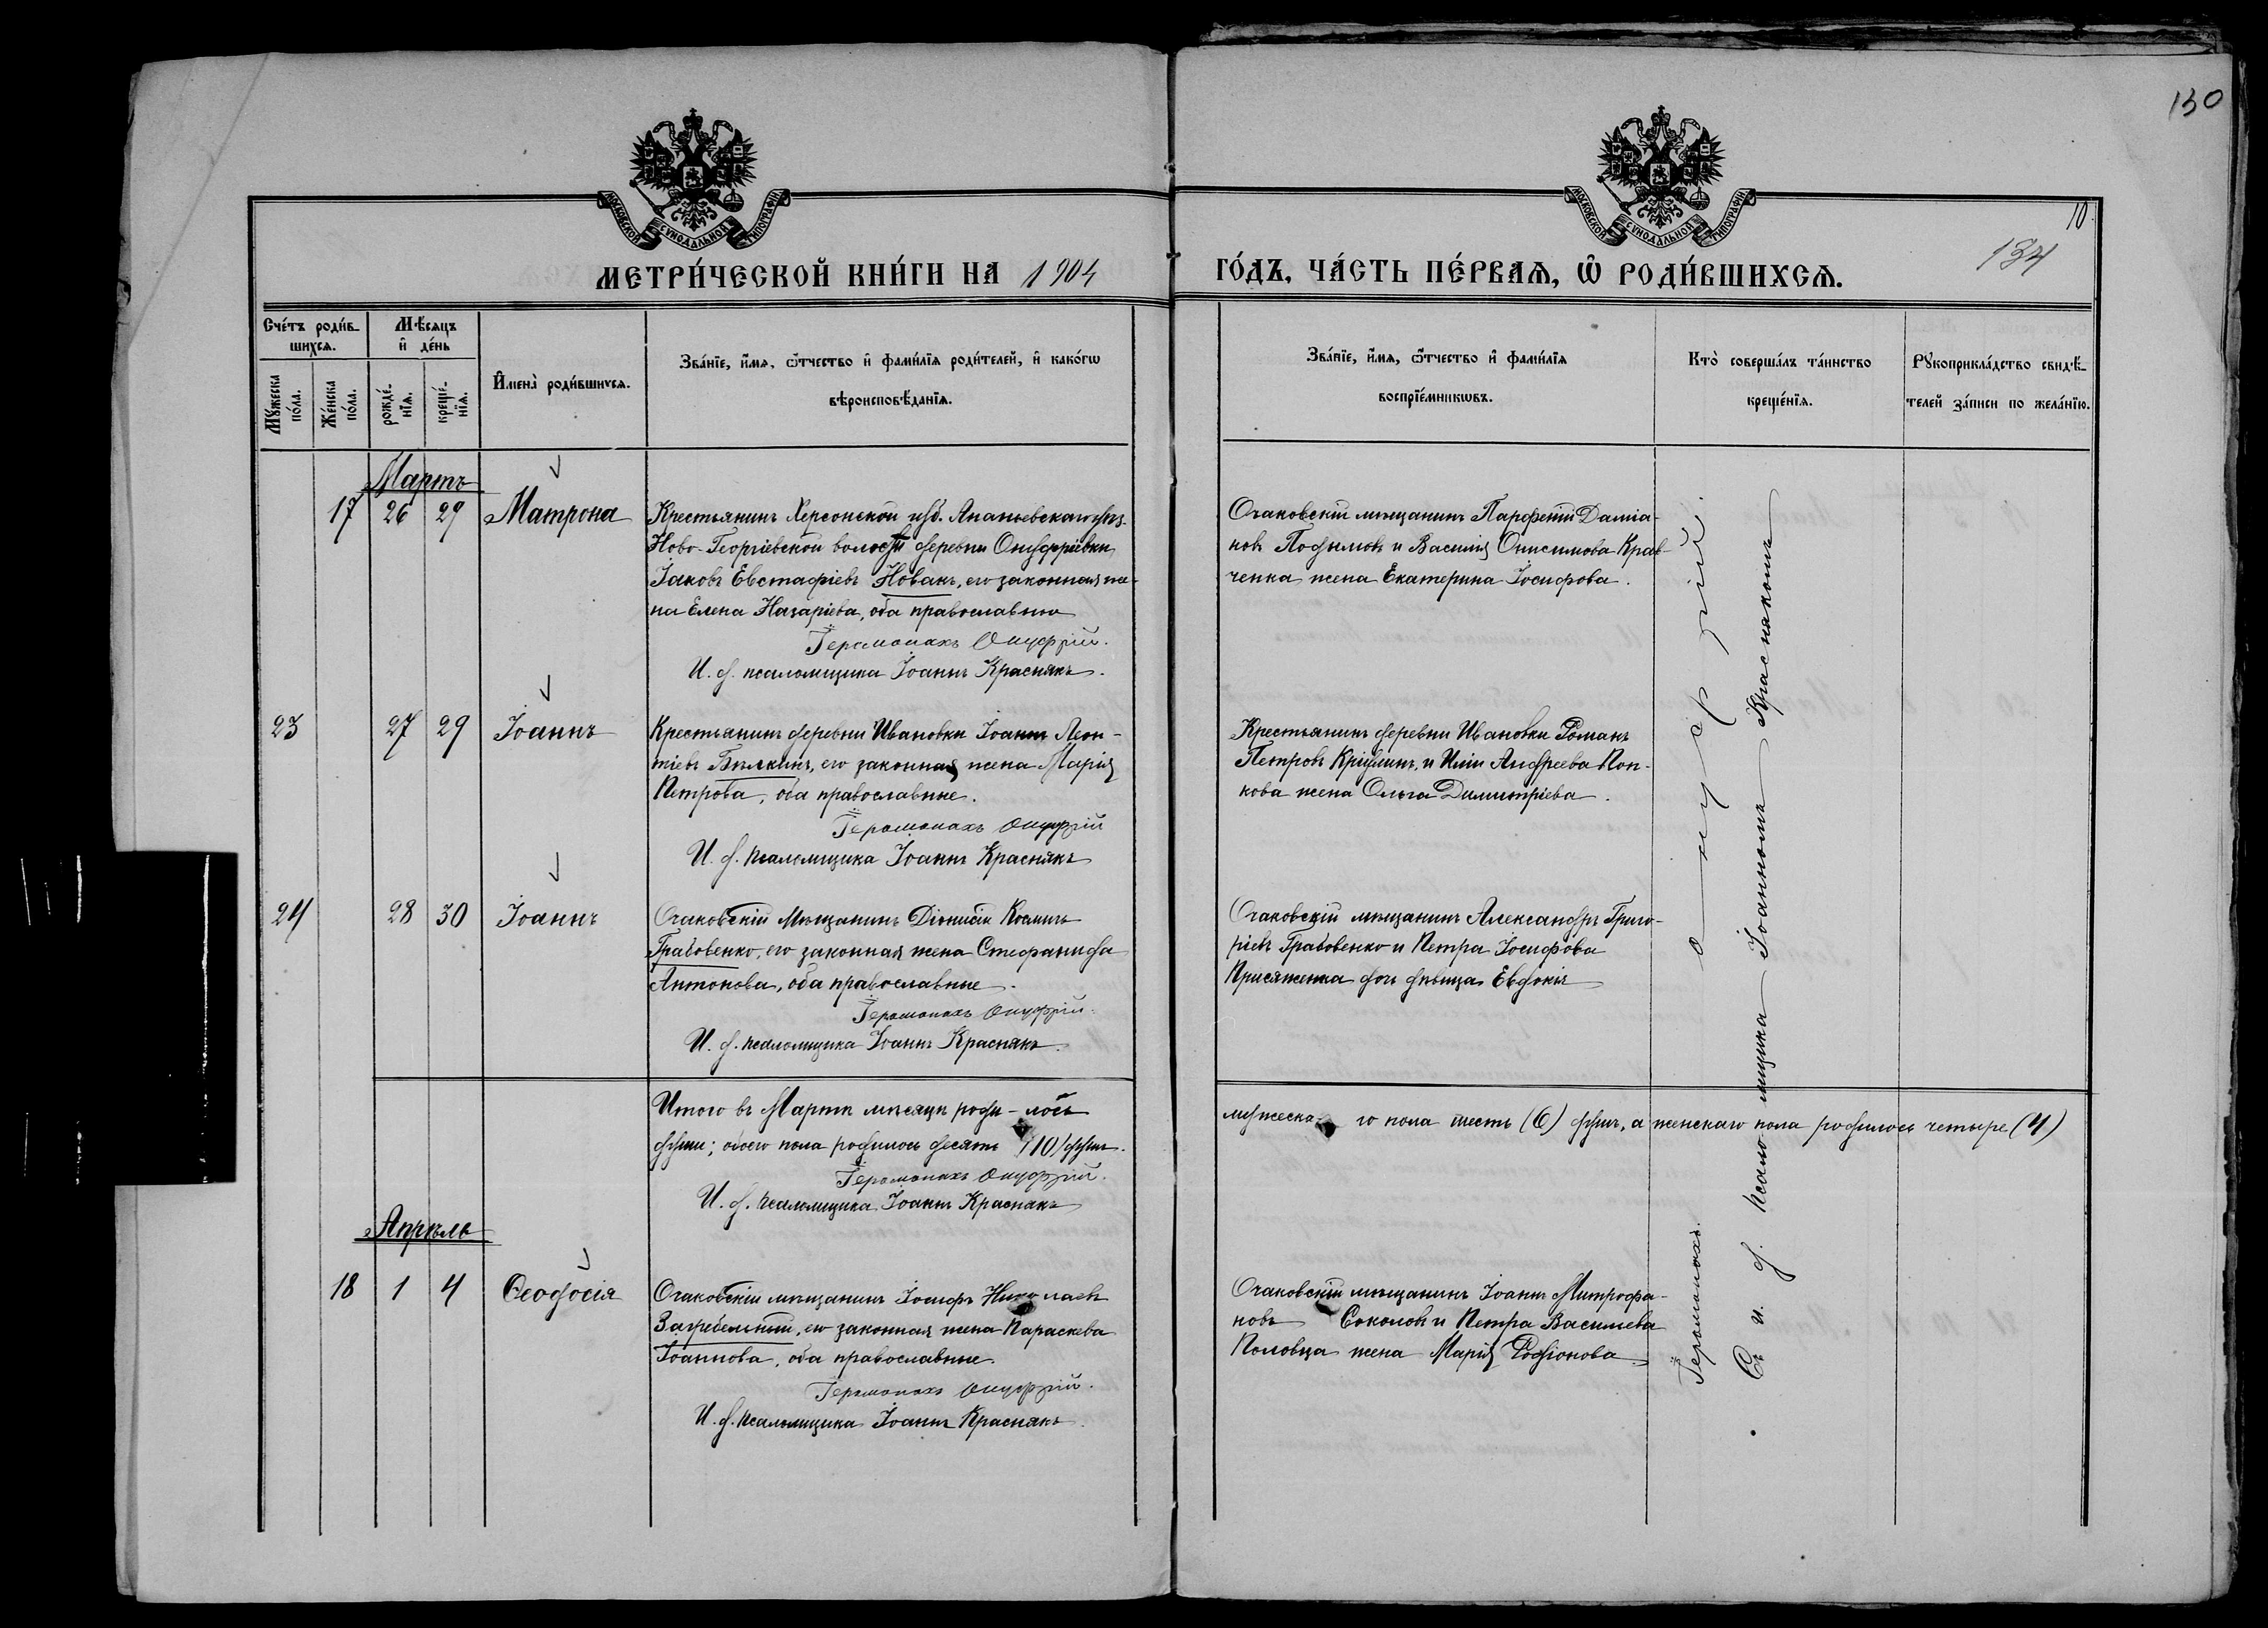 130
10.
134
МОСКОВСКОЙ СѴНОДАЛЬНОЙ ТИПОГРАФІИ
МОСКОВСКОЙ СѴНОДАЛЬНОЙ ТИПОГРАФІИ
МЕТРИ́ЧЕСКОЙ КНИ́ГИ НА 1904
ГО́ДЪ, ЧА́СТЬ ПЕ́РВАѦ, Ѿ РОДИ́ВШИХСѦ.
Сче́тъ роди́в-
шихсѧ.
Мѣ́сѧцъ
и҆ де́нь
Мꙋ́жеска
по́ла.
Же́нска
по́ла.
рожде́-
нїѧ.
креще́-
нїѧ.
И҆мена̀ роди́вшихсѧ.
Зва́нїе, и҆́мѧ, ѻ҆́тчество и҆ фами́лїѧ роди́телей, и҆ како́гѡ
вѣроисповѣ́данїѧ.
Зва́нїе, и҆́мѧ, ѻ҆́тчество и҆ фами́лїѧ
воспрїе́мникѡвъ.
Кто̀ соверша́лъ та́инство
креще́нїѧ.
Рꙋкоприкла́дство свидѣ́-
телей за́писи по жела́нїю.
Мартъ
17 26 29 Матрона
Крестьянинъ Херсонской губ. Ананьевскаго уѣз.
Ново-Георгіевской волости деревни Онуфріевки
Іаковъ Евстафіевъ Новакъ, его законная же-
на Елена Назаріева, оба православные
Іеромонахъ Онуфрій.
И. д. псаломщика Іоаннъ Краснякъ.
Очаковскій мѣщанинъ Парфеній Даміа-
новъ Подымовъ и Василія Онисимова Крав-
ченка жена Екатерина Іосифова.
23 27 29 Іоаннъ
Крестьянинъ деревни Ивановки Іоаннъ Леон-
тіевъ Бѣлкинъ, его законная жена Марія
Петрова, оба православные.
Іеромонахъ Онуфрій
И. д. псаломщика Іоаннъ Краснякъ
Крестьянинъ деревни Ивановки Романъ
Петровъ и Иліи Андреева Поп-
кова жена Ольга Димитріева.
24 28 30 Іоаннъ
Очаковскій мѣщанинъ Діонисій Косминъ
Грабовенко, его законная жена Стефанида
Антонова, оба православные.
Іеромонахъ Онуфрій.
И. д. псаломщика Іоаннъ Краснякъ.
Очаковскій мѣщанинъ Александръ Григо-
ріевъ Грабовенко и Петра Іосифова
Присяженка дочь дѣвица Евдокія
Итого въ Мартѣ мѣсяцѣ роди-лось
мужеска-го пола шесть (6) душъ, а женскаго пола родилось четыре (4)
души; обоего пола родилось десять (10) душъ.
Іеромонахъ Онуфрій.
И. д. псаломщика Іоаннъ Краснякъ
Апрѣль
18 1 4 Ѳеодосія
Очаковскій мѣщанинъ Іосифъ Николаевъ
Загребельный, его законная жена Параскева
Іоаннова, оба православные.
Іеромонахъ Онуфрій.
И. д. псаломщика Іоаннъ Краснякъ.
Очаковскій мѣщанинъ Іоаннъ Митрофа-
новъ Соколовъ и Петра Васильева
Половца жена Марія Родіонова.
Іеромонахъ Онуфрій.
Съ и. д. псаломщика Іоанномъ Краснякомъ